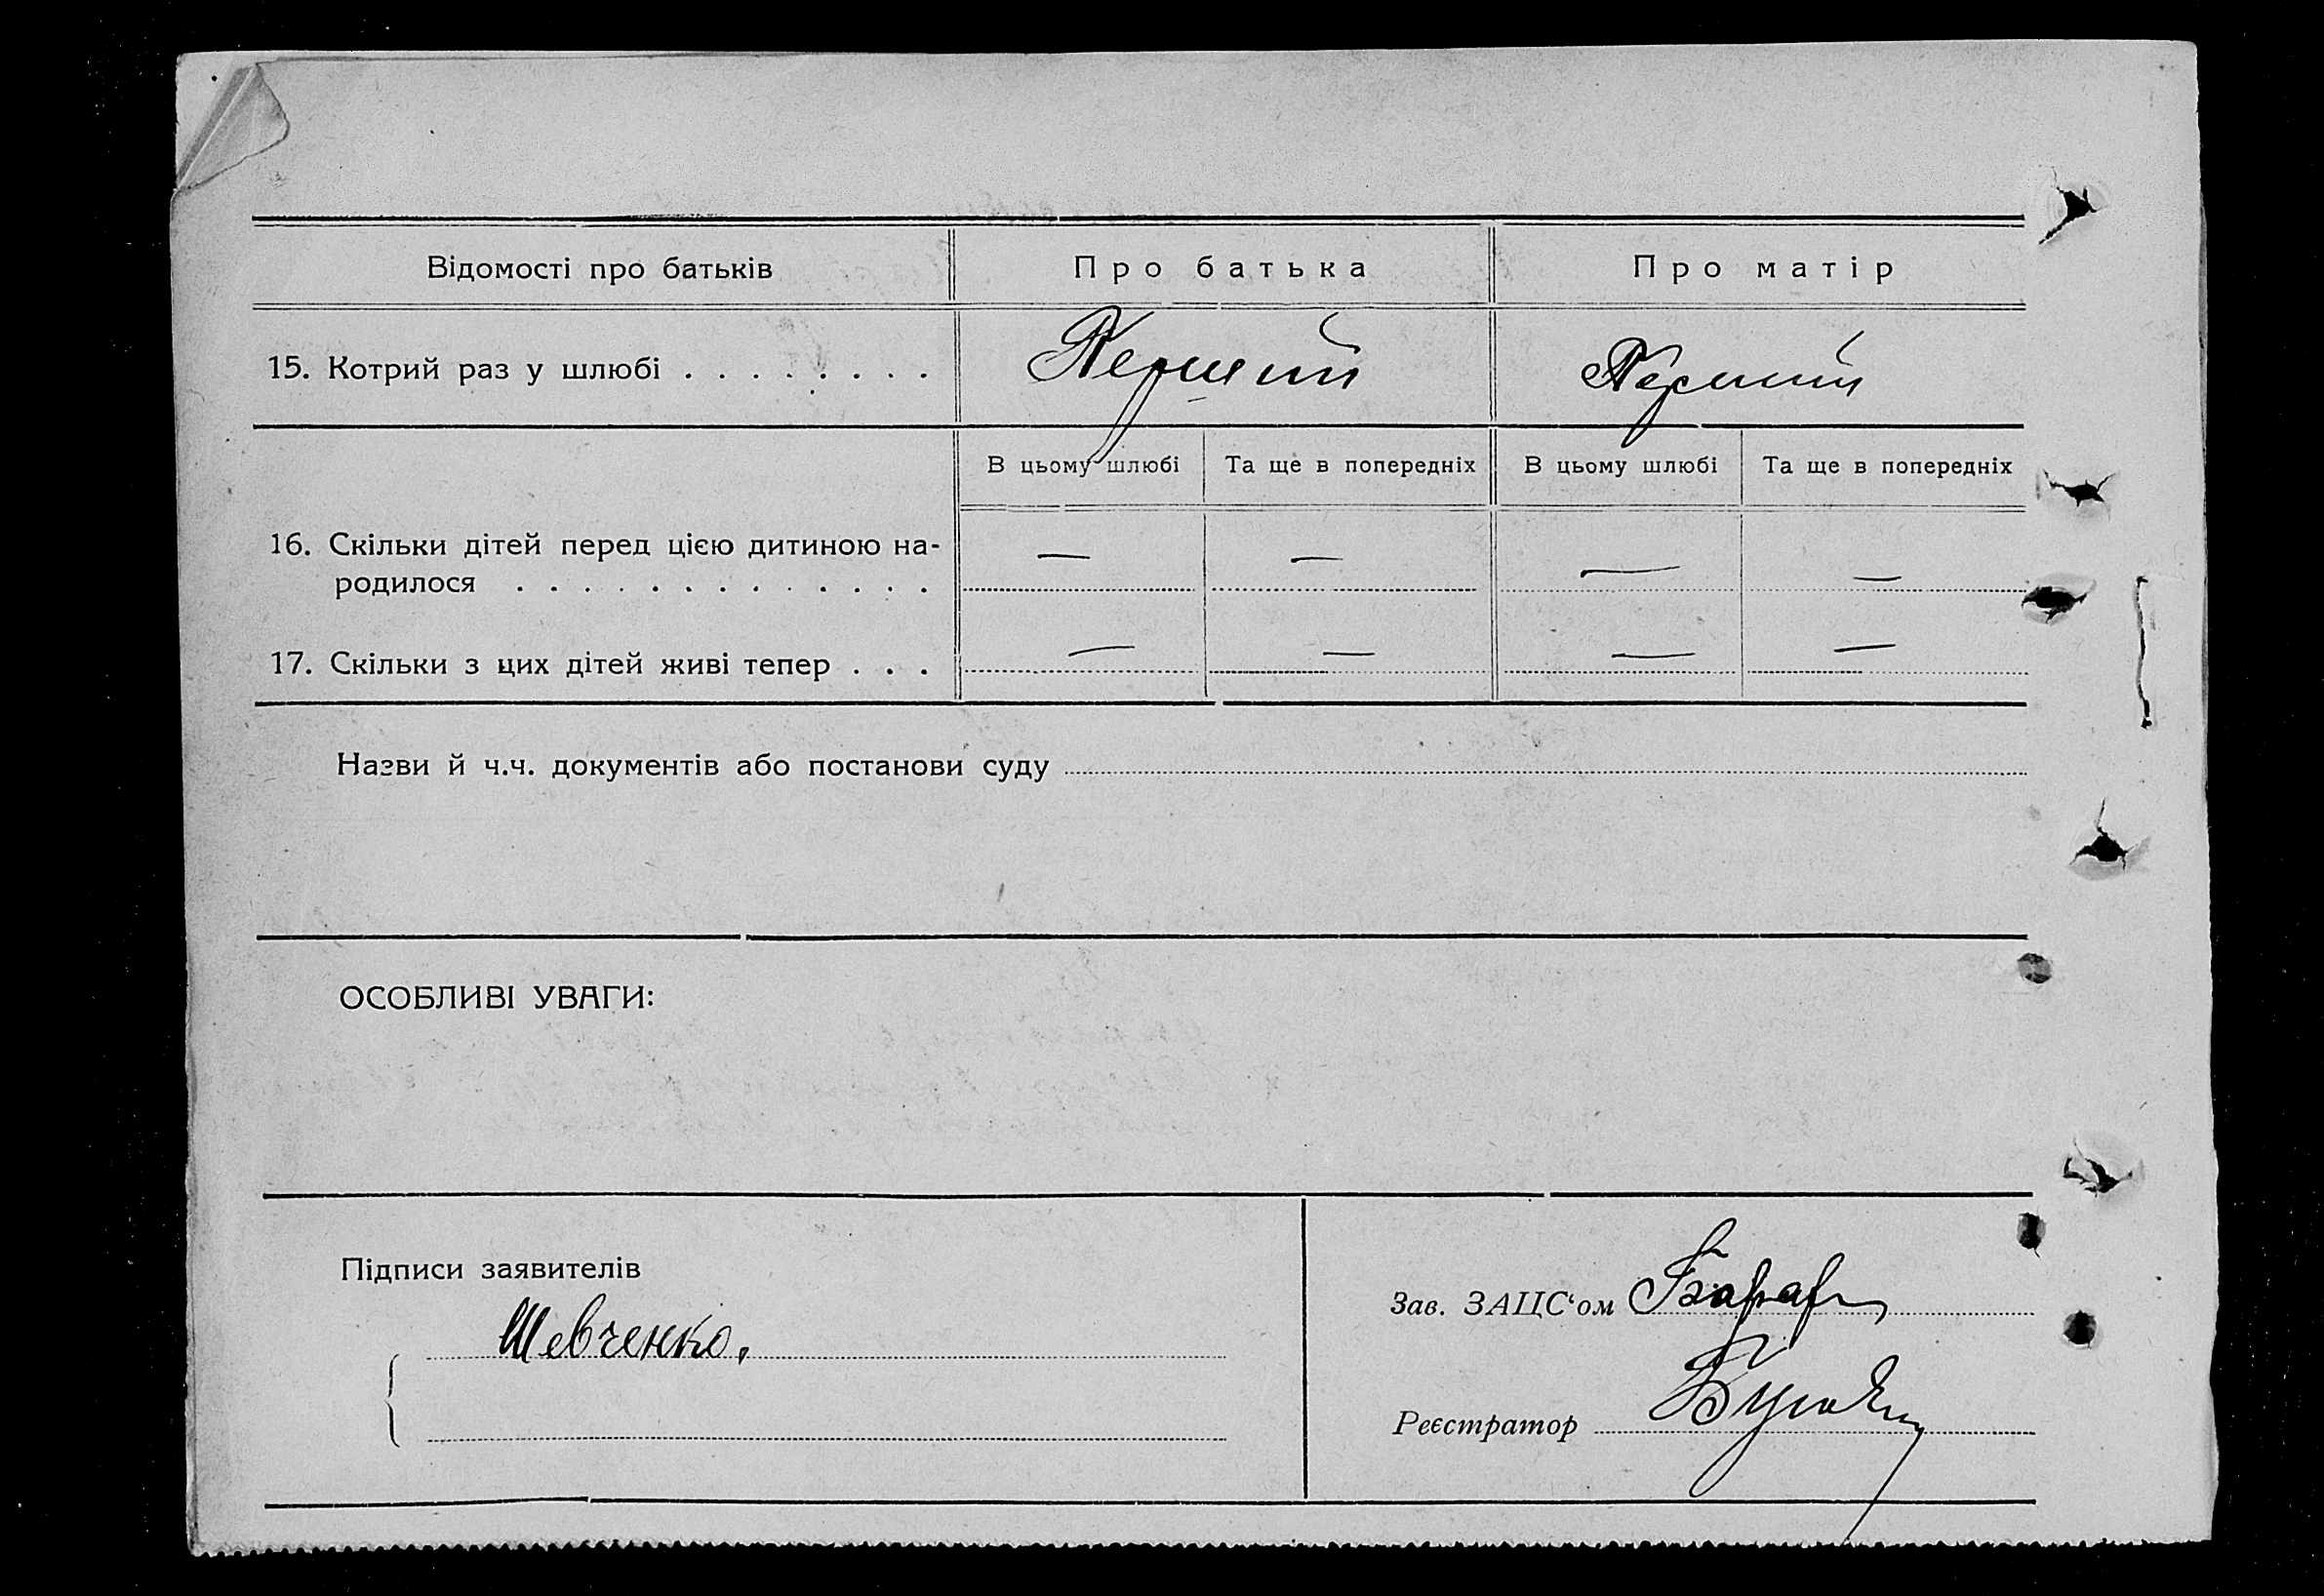 Відомості про батьків Про батька Про матір
15. Котрий раз у шлюбі . . . . . . . . Перший Перший
В цьому шлюбі Та ще в попередніх В цьому шлюбі Та ще в попередніх
16. Скільки дітей перед цією дитиною на-
родилося . . . . . . . . . . . . . — — — —
17. Скільки з цих дітей живі тепер . . . — — — —
Назви й ч.ч. документів або постанови суду
ОСОБЛИВІ УВАГИ:
Підписи заявителів
Шевченко.
Зав. ЗАЦС‘ом
Реєстратор